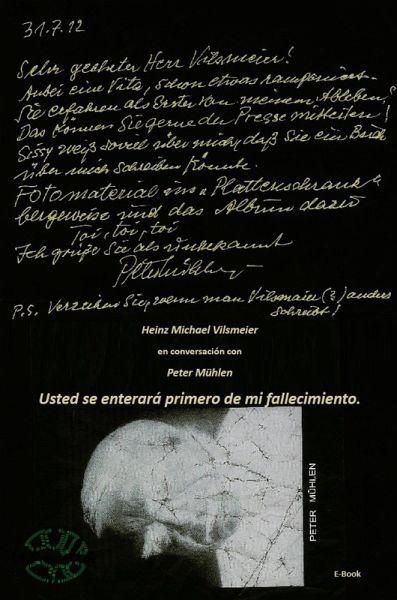 31.7.12
Sehr geehrter Herr Vilsmeier!
Anbei eine Vita, schon etwas ramponiert.
Sie erfahren als Erster von meinem Ableben,
Das können Sie gerne der Presse mitteilen!
Sissy weiß soviel über mich, daß Sie ein Buch
über mich schreiben könnte.
Fotomaterial "Plattenschrank"
bergeweise und das Album dazu
Toi, toi, toi
Ich grüße Sie als unbekannt
P.S. Verzeihen Sie, wenn man Vilsmaier (?) anders
schreibt!
Heinz Michael Vilsmeier
en conversación con
Peter Mühlen
Usted se enterará primero de mi fallecimiento.
PETER MÜHLEN
E-Book